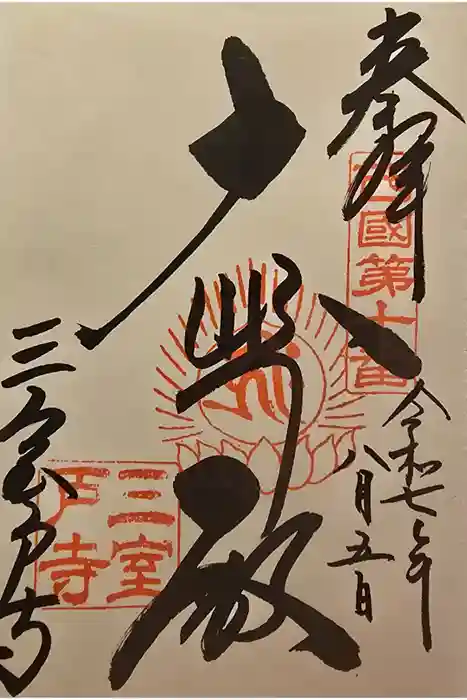 奉拝
西國第十番
令和七年
八月五日
大悲殿
三室戸寺
三室
戸寺